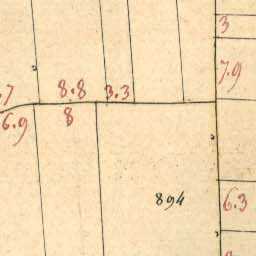 3
7.9
.7 8.8 3.3
6.9 8
894
6.3